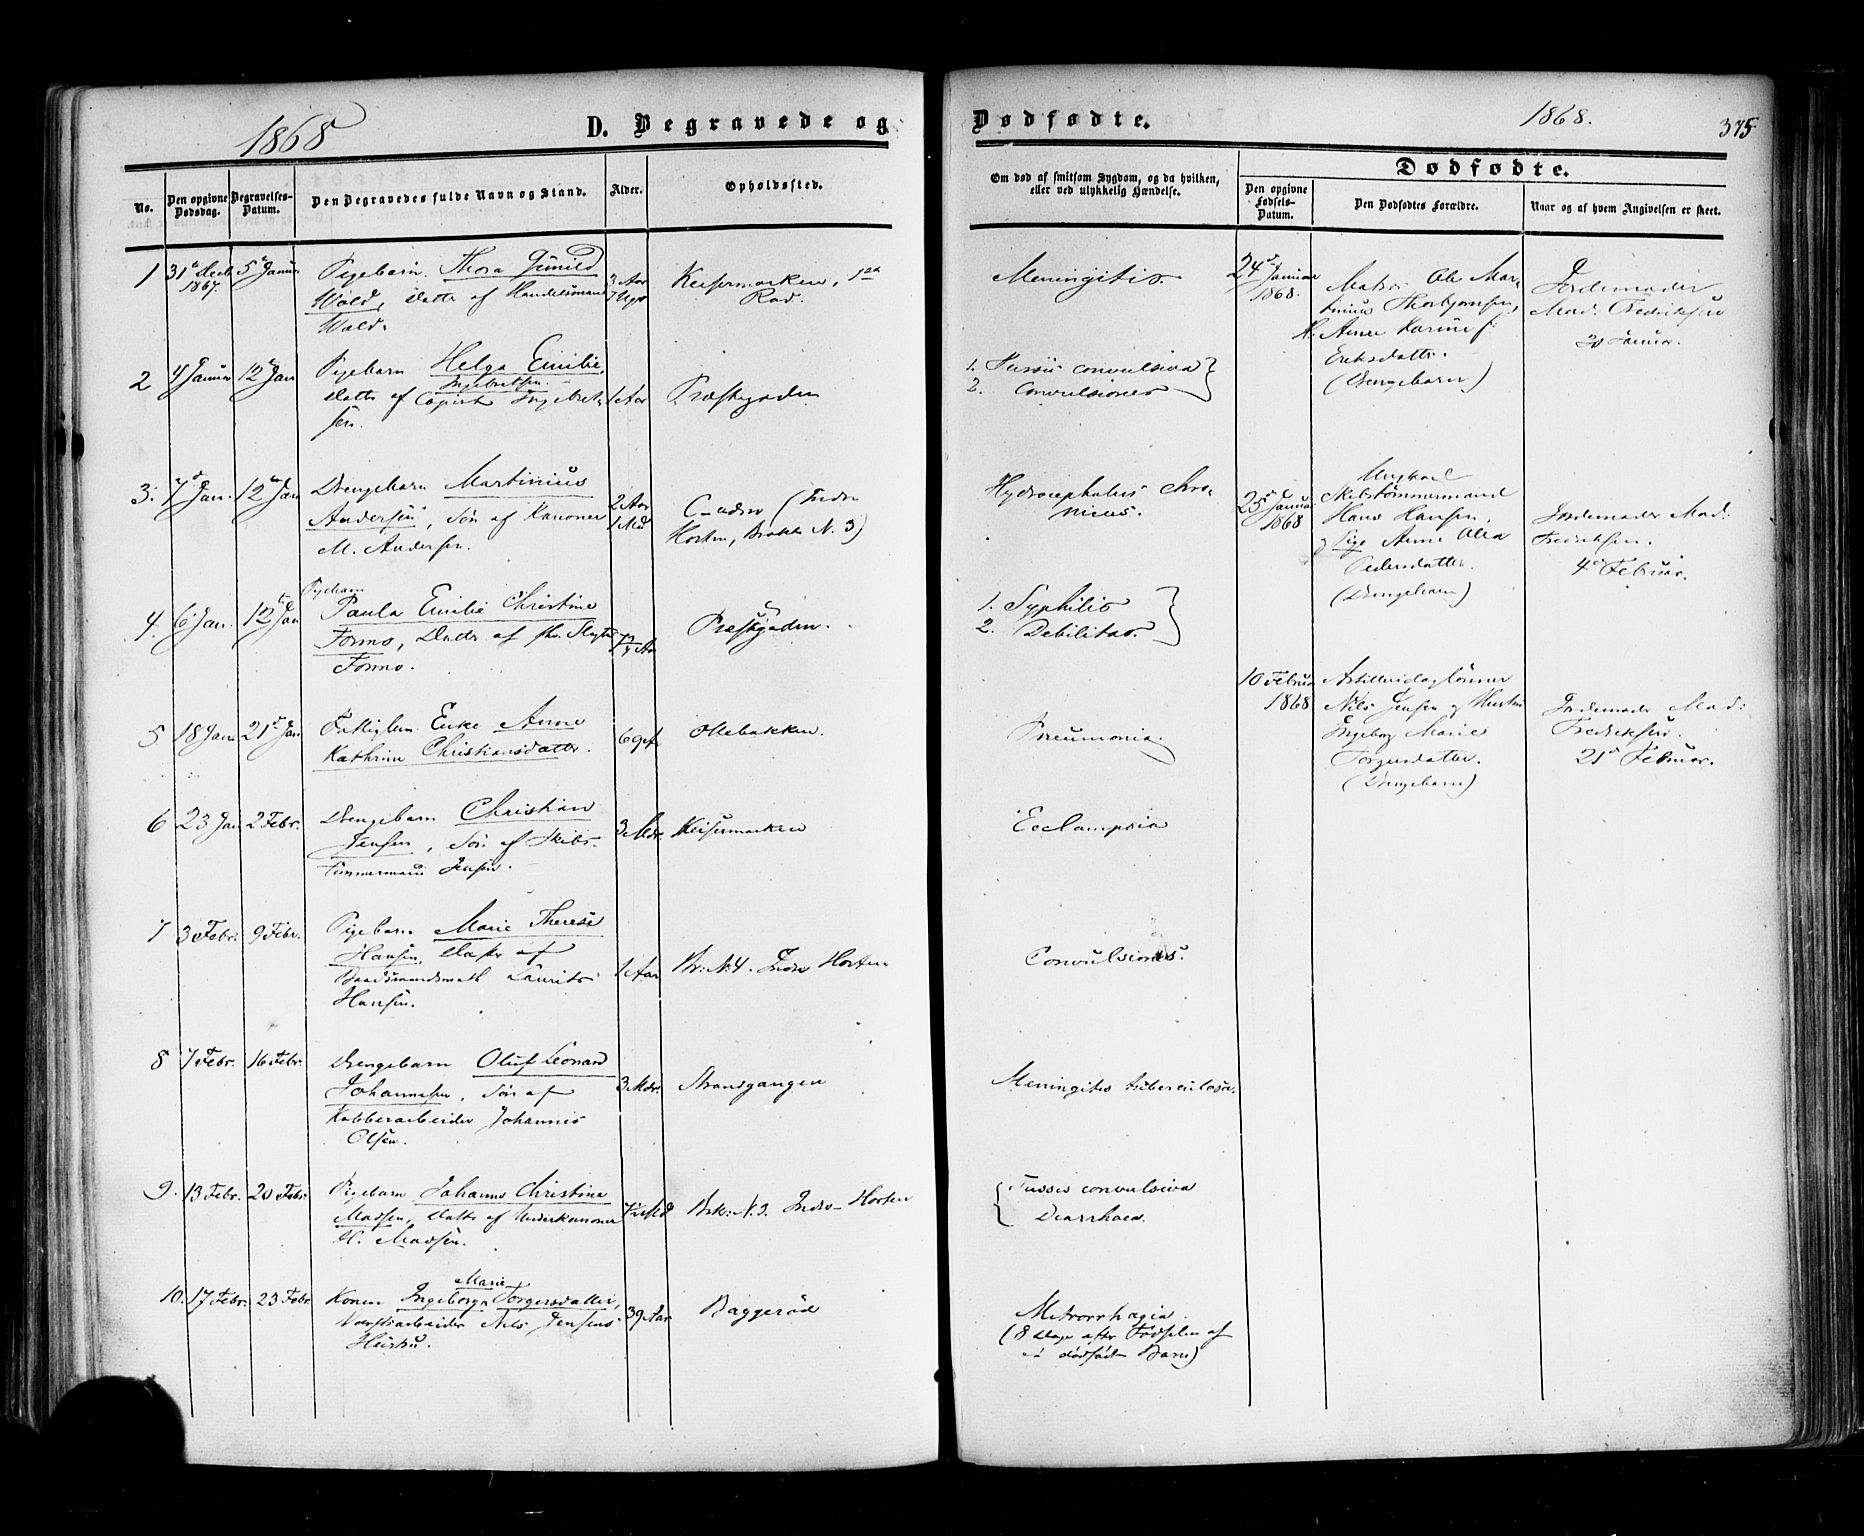 1868
D. Begravede og
No.
Den opgivne Dødsdag.
Begravelses-Datum.
Den Begravedes fulde Navn og Stand.
Alder.
Opholdssted.
1 31te Decb. 1867. 5te Januar Pigebarn Thora Gunild 3 Aar Keisermarken, 1ste
Wold, Datter af Handelsmand Rad.
Wold.
2 4 Januar 12te Jan Pigebarn Helga Emilie
Ingebretsen.
Datter af Copist Ingebret- 1 Aar Præstegaden
sen.
3. 7de Jan. 12te Jan Drengebarn Martinius 2 Aar
Andersen, Søn af Kanoner 1 Md (Indre
M. Andersen. Horten, Brakke N. 3)
4. 6 Jan. 12te Jan Pigebarn
Paula Emilie Christine Præstegaden.
Formo, Datter af
Formo.
5 18 Jan 21de Jan Fattiglem Enke Anne 69 Ollebakken.
Kathrine Christiansdatter.
6 23 Jan 2 Febr. Drengebarn Christian 3 Mdr. Keisermarken
Jensen, Søn af Skibs-
tømmermand Jensen.
7 3 Febr. 9 Febr. Pigebarn Marie Therese
Hansen, Datter af
Baadsmandsmath Laurits 1 Aar Br: N: 4. Indre Horten
Hansen.
8 7 Febr. 16 Febr. Drengebarn Oluf Leonard
Johannesen, Søn af 3 Mdr. Strandgangen
Kobberarbeider Johannes
Olsen.
9. 13 Febr. 20 Febr Pigebarn Johanne Christine Brk: N. 3. Indre Horten
Madsen, Datter af Underkanoner
H. Madsen.
10. 17 Febr. 23 Febr. Marie
Konen Ingeborg Torgersdatter, 39 Aar Baggerød
Værftsarbeider Nils Jensens
Hustru.
Dødfødte.
1868.
375
Om død af smitsom Sygdom, og da hvilken,
eller ved ulykkelig Hændelse.
Dødfødte.
Den opgivne Fødsels-Datum.
Den Dødfødtes Forældre.
Naar og af hvem Angivelsen er skeet.
Meningitis.
1. Tussis convulsiva
2. Convulsiones
Hydrocephalus chro-
nicus.
1. Syphilis
2. Debilitas.
Pneumonia.
Ecclampsia
Convulsiones.
Meningitis tuberculosa.
Tussis convulsiva
Diarrhoea.
Metrorrhagia.
(8 Dage efter Fødselen af
et dødfødt Barn)
24de Januar 1868.
Matros Ole Mar-
tinius Thorbjørnsen,
H. Anne Karine
Eriksdatter.
(Drengebarn)
Jordemoder
Mad. Fredriksen
30 Januar.
25de Januar 1868
Ungkarl
Skibstømmermand
Hans Hansen,
Pige Anne Olea
Pedersdatter.
(Drengebarn)
Jordemoder Mad:
Fredriksen.
4de Februar.
10 Februar 1868
Artilleridagslønner
Nils Jensen og Hustru
Ingeborg Marie
Torgersdatter.
(Drengebarn)
Jordemoder Mad:
Fredriksen.
21de Februar.